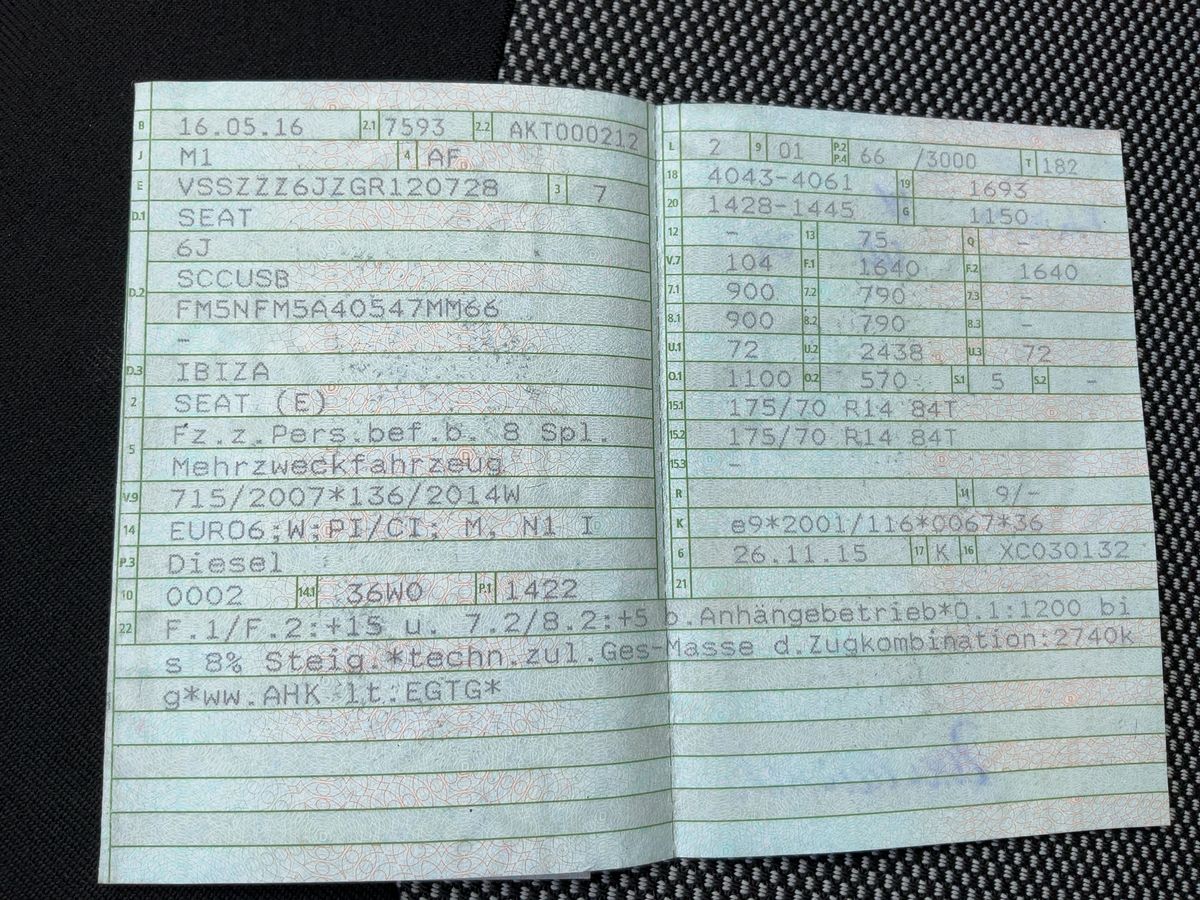 B 16.05.16 2.1 7593 2.2 AKT000212
J M1 4 AF
E VSSZZZ6JZGR120728 3 7
D.1 SEAT
6J
D.2 SCCUSB
FM5NFM5A40547MM66
–
D.3 IBIZA
2 SEAT (E)
5 Fz.z.Pers.bef.b. 8 Spl.
Mehrzweckfahrzeug
V.9 715/2007*136/2014W
14 EURO6;W;PI/CI; M, N1 I
P.3 Diesel
10 0002 14.1 36W0 P.1 1422
L 2 9 01 P.2 P.4 66 /3000 T 182
18 4043-4061 19 1693
20 1428-1445 G 1150
12 – 13 75 Q –
V.7 104 F.1 1640 F.2 1640
7.1 900 7.2 790 7.3 –
8.1 900 8.2 790 8.3 –
U.1 72 U.2 2438 U.3 72
O.1 1100 O.2 570 S.1 5 S.2 –
15.1 175/70 R14 84T
15.2 175/70 R14 84T
15.3 –
R 11 9/–
K e9*2001/116*0067*36
6 26.11.15 17 K 16 XC030132
21
22 F.1/F.2:+15 u. 7.2/8.2:+5 b.Anhängebetrieb*O.1:1200 bi
s 8% Steig.*techn.zul.Ges-Masse d.Zugkombination:2740k
g*ww.AHK lt.EGTG*